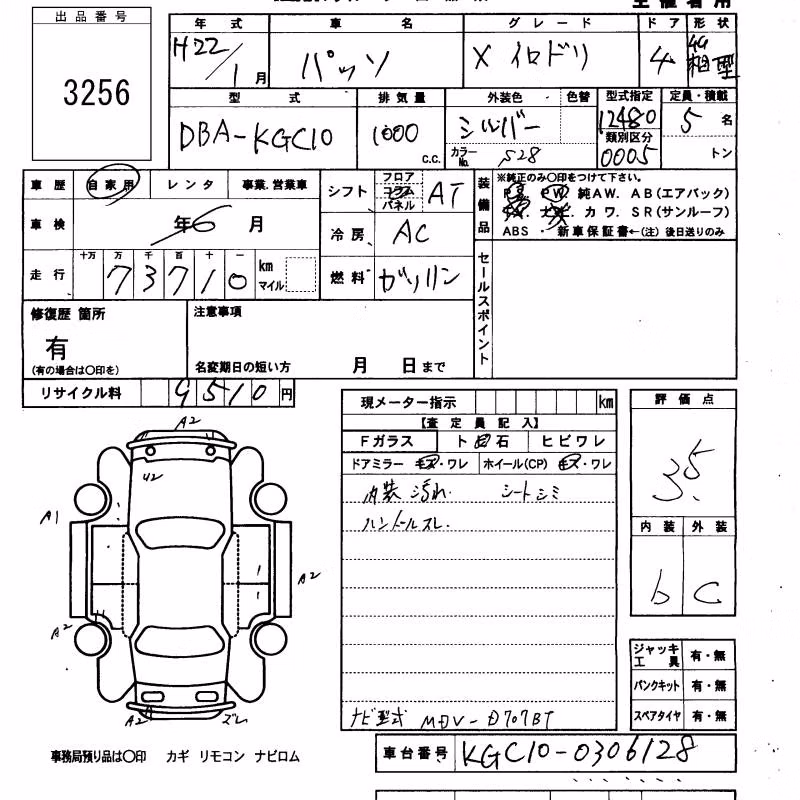 出品番号
3256
年式 車名 グレード ドア 形状
H22/1月 パッソ X イロドリ 4
型式 排気量 外装色 色替 型式指定 定員・積載
DBA-KGC10 1000 C.C. シルバー 12480 5名
類別区分
カラーNo. S28 0005 トン
車歴 自家用 レンタ 事業.営業車
シフト フロア コラム パネル AT
装備品
※純正のみ〇印をつけて下さい。
PW 純AW. AB(エアバック)
カワ. SR(サンルーフ)
ABS ・ 新車保証書←(注) 後日送りのみ
車検 年6月
冷房 AC
走行 十万 万 千 百 十 一
73710 km マイル
燃料 ガソリン
セールスポイント
修復歴 箇所
有
(有の場合は〇印を)
注意事項
名変期日の短い方 月 日まで
リサイクル料 9510円
現メーター指示 km
【査定員記入】
Fガラス ト 石 ヒビワレ
ドアミラー キズ・ワレ ホイール(CP) キズ・ワレ
内装 汚れ. シートシミ
ハンドルスレ.
ナビ型式 MDV-D707BT
評価点
3.5
内装 外装
b C
A2
U2
A1
A2
A2
A2 ズレ
ジャッキ工具 有・無
パンクキット 有・無
スペアタイヤ 有・無
事務局預り品は〇印 カギ リモコン ナビロム
車台番号 KGC10-0306128